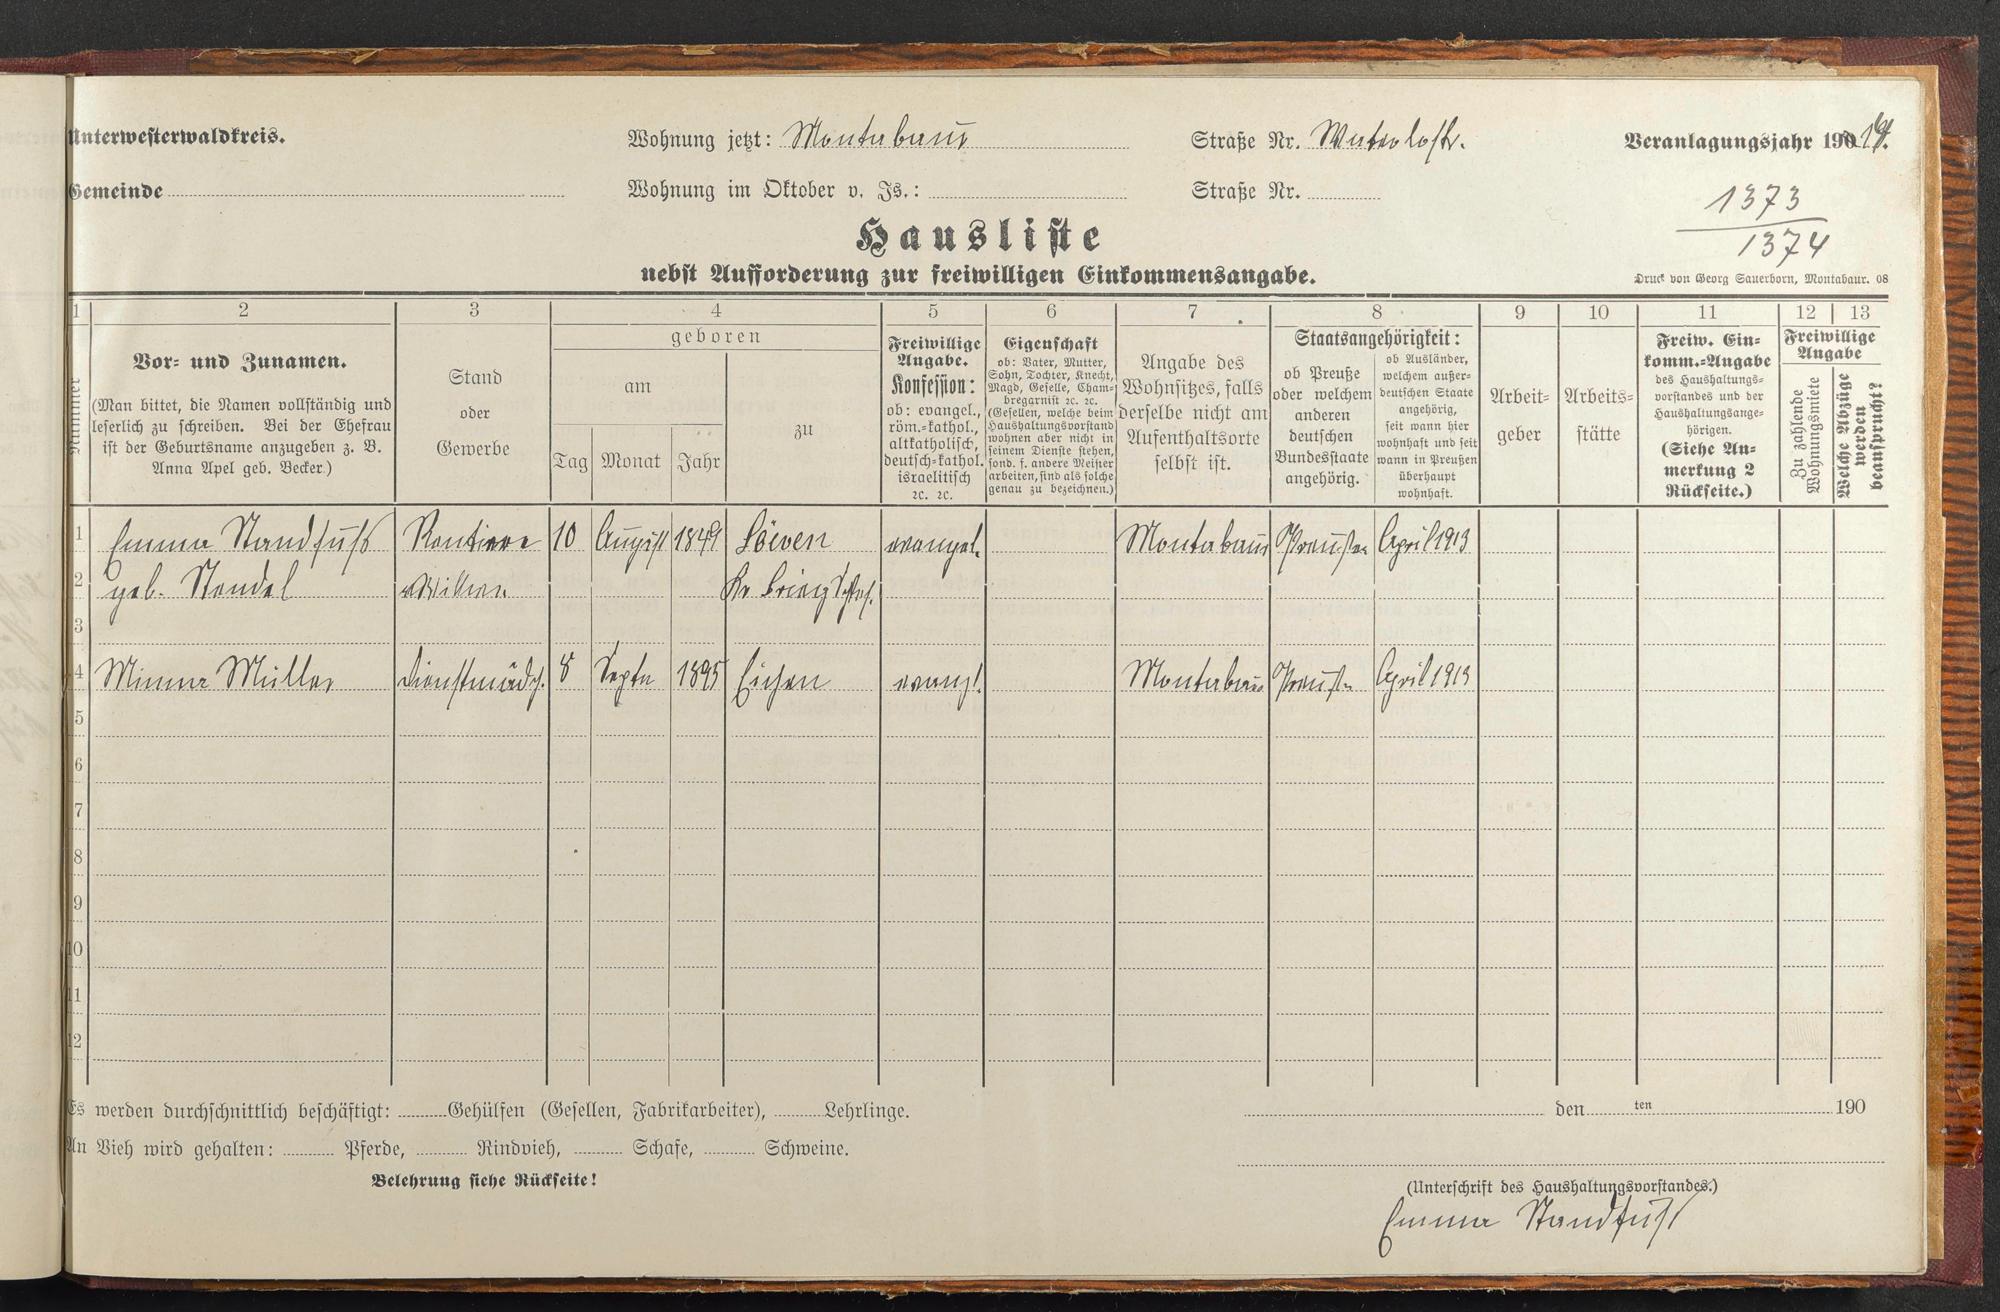 Unterwesterwaldkreis.
Wohnung jetzt: Montabaur
Straße Nr. Waterlostr.
Veranlagungsjahr 1914.
Gemeinde
Wohnung im Oktober v. Js.:
Straße Nr.
1373
1374
Hausliste
nebst Aufforderung zur freiwilligen Einkommensangabe.
Druck von Georg Sauerborn, Montabaur. 08
1 2 3 4 5 6 7 8 9 10 11 12 13
Nummer
Vor- und Zunamen.
(Man bittet, die Namen vollständig und
leserlich zu schreiben. Bei der Ehefrau
ist der Geburtsname anzugeben z. B.
Anna Apel geb. Becker.)
Stand
oder
Gewerbe
geboren
am
Tag Monat Jahr
zu
Freiwillige
Angabe.
Konfession:
ob: evangel.,
röm.-kathol.,
altkatholisch,
deutsch-kathol.
israelitisch
ec. ec.
Eigenschaft
ob: Vater, Mutter,
Sohn, Tochter, Knecht,
Magd, Geselle, Cham-
bregarnist ec. ec.
(Gesellen, welche beim
Haushaltungsvorstand
wohnen aber nicht in
seinem Dienste stehen,
sond. f. andere Meister
arbeiten, sind als solche
genau zu bezeichnen.)
Angabe des
Wohnsitzes, falls
derselbe nicht am
Aufenthaltsorte
selbst ist.
Staatsangehörigkeit:
ob Preuße
oder welchem
anderen
deutschen
Bundesstaate
angehörig.
ob Ausländer,
welchem außer-
deutschen Staate
angehörig,
seit wann hier
wohnhaft und seit
wann in Preußen
überhaupt
wohnhaft.
Arbeit-
geber
Arbeits-
stätte
Freiw. Ein-
komm.-Angabe
des Haushaltungs-
vorstandes und der
Haushaltungsange-
hörigen.
(Siehe An-
merkung 2
Rückseite.)
Freiwillige
Angabe
Zu zahlende
Wohnungsmiete
Welche Abzüge
werden
beansprucht?
1 Emma Standfuß Rentiere 10 August 1849 Löwen evangel. Montabaur Preußen April 1913
2 geb. Stendel Witwe Kr Brieg Schles.
3
4 Minna Müller Dienstmädch. 8 Septe 1895 Eichen evangl. Montabaur Preußen April 1913
5
6
7
8
9
10
11
12
Es werden durchschnittlich beschäftigt: Gehülfen (Gesellen, Fabrikarbeiter), Lehrlinge.
den ten 190
An Vieh wird gehalten: Pferde, Rindvieh, Schafe, Schweine.
Belehrung siehe Rückseite!
(Unterschrift des Haushaltungsvorstandes.)
Emma Standfuß